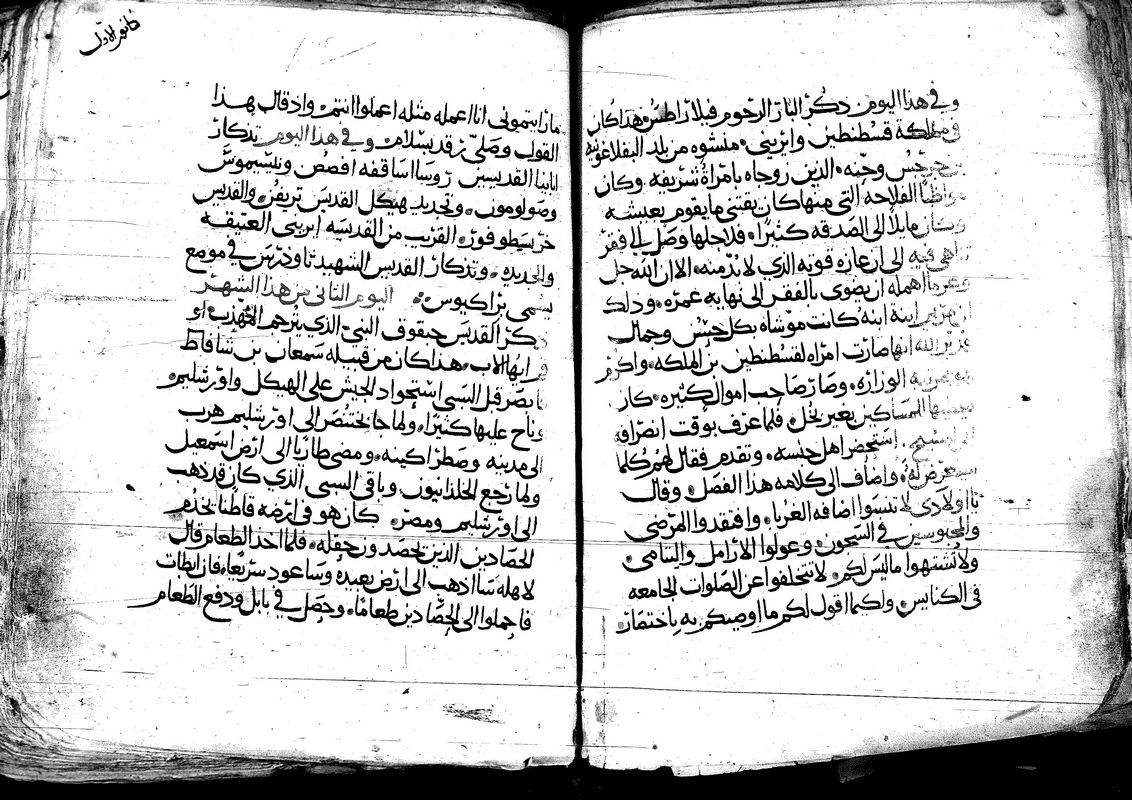 وفي هذا اليوم ذكر البار الرحوم فيلاراطس هذا كان
في مملكة قسطنطين وايريني منشوه من بلد البفلاغونيه
جرجس وحنه الذين زوجاه بامراة شريفه وكان
الفلاحه التي منها كان يقتني ما يقوم بعيشه
وكان مايلا الى الصدقه كثيرا فلاجلها وصل الى فقر
فيه الى ان عازه قوته الذي لا بد منه الا ان الله جل
وعز ما اهمله ان يضوى بالفقر الى نهاية عمره وذلك
ان ابنة ابنه كانت موشاه بكل حسن وجمال
الله انها صارت امراه لقسطنطين بن الملكه واكرم
الوزاره وصار صاحب اموال كثيره كان
المساكين بغير بخل فلما عرف بوقت انصرافه
الى المسيح استحضر اهل جنسه وتقدم فقال لهم كلما
له واضاف الى كلامه هذا الفصل وقال
يا اولادي لا تنسوا اضافه الغربا وافتقدوا المرضى
والمحبوسين في السجون وعولوا الارامل واليتامى
ولا تشتهوا ما ليس لكم لا تتخلفوا عن الصلوات الجامعه
في الكنايس ولكيما اقول لكم ما اوصيكم به باختصار
كانون الاول
ما رايتموني انا اعمله مثله اعملوا انتم واذ قال بهذا
القول وصلى رقد بسلام وفي هذا اليوم تذكار
ابائنا القديسين روسا اساقفه افصص وانيسيموس
وصولومون وتجديد هيكل القديس تريفن والقديس
خرسطوفورس القريب من القدسه ايريني العتيقه
والجديده وتذكار القديس الشهيد تاوذرس في موضع
يسمى براكيوس اليوم الثاني من هذا الشهر
ذكر القديس حبقوق النبي الذي يترجم المهذب او
ابهال الاب هذا كان من قبيله سمعان بن شافاط
ابصر قبل السبي استحواد الجيش على الهيكل واورشليم
وناح عليها كثيرا ولما جا بختنصر الى اورشليم هرب
الى مدينه وصطراكينه ومضى طاريا الى ارض اسمعيل
ولما رجع الخلدانيون وباقي السبي الذي كان قد ذهب
الى اورشليم ومصر كان هو في ارضه قاطنا يخدم
الحصادين الذين يحصدون حقله فلما اخذ الطعام قال
لاهله سااذهب الى ارض بعيده وساعود سريعا فان ابطات
فاحملوا الى الحصادين طعاما وحصل في بابل ودفع الطعام